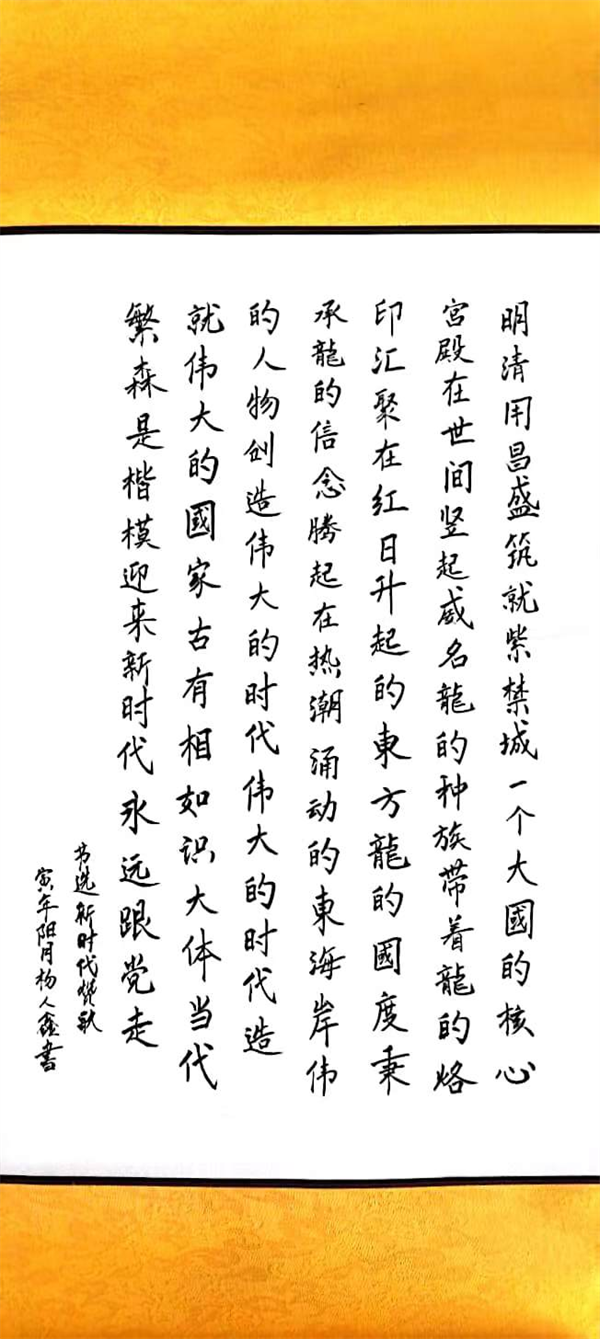 明清用昌盛筑就紫禁城一个大國的核心
宫殿在世间竖起威名龍的种族带着龍的烙
印汇聚在红日升起的東方龍的國度秉
承龍的信念腾起在热潮涌动的東海岸伟
的人物创造伟大的时代伟大的时代造
就伟大的國家古有相如识大体当代
繁森是楷模迎来新时代永远跟党走
书选新时代赞歌
寅年阳月杨人鑫書